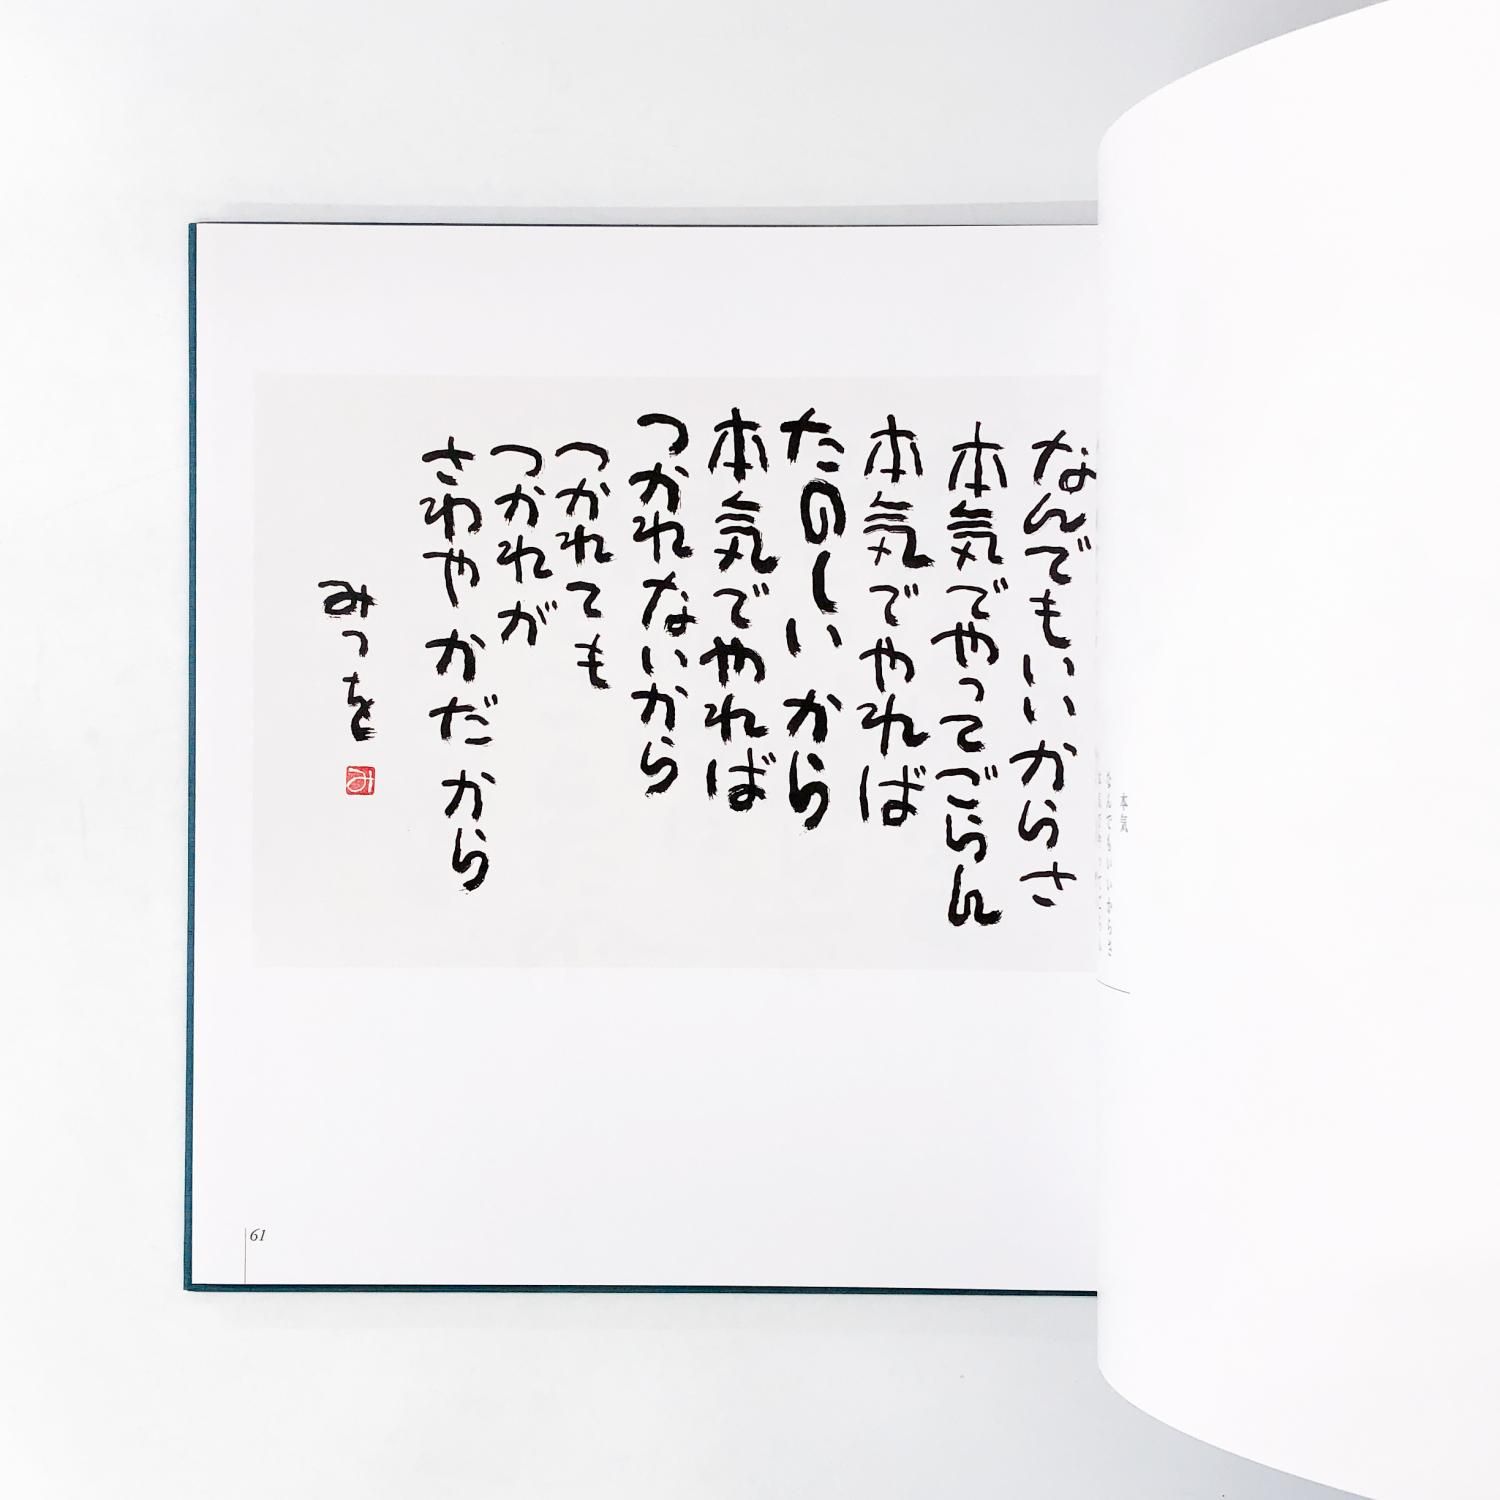 なんでもいいからさ
本気でやってごらん
本気でやれば
たのしいから
本気でやれば
つかれないから
つかれても
つかれが
さわやかだから
みつを
み
61
本気
なんでもいいからさ